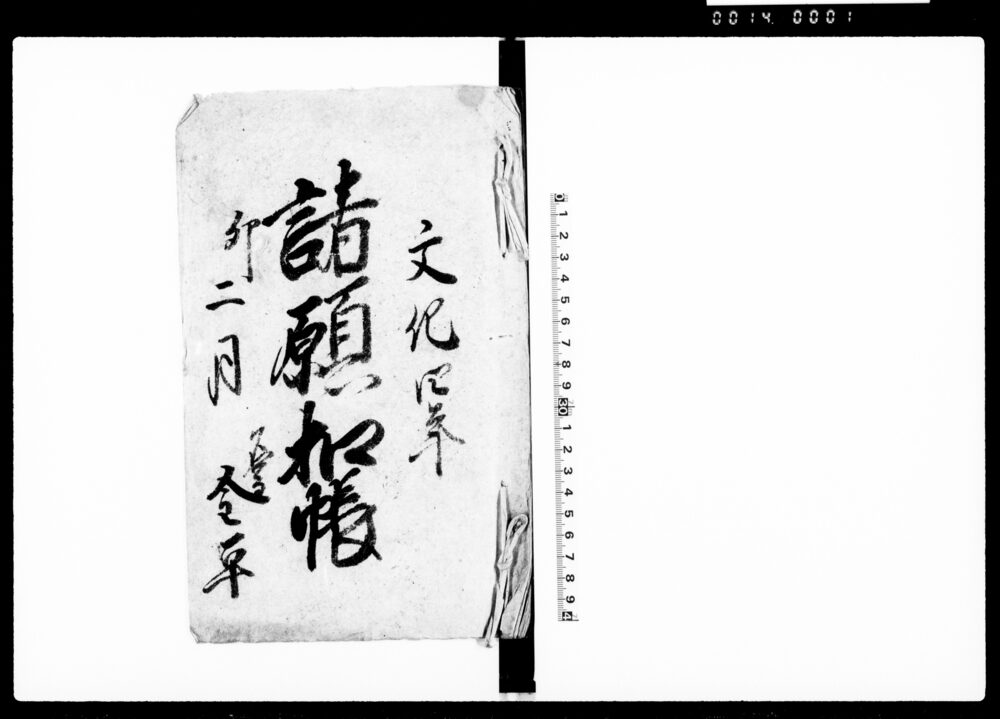 0014 0001
文化四年
諸願扣帳
卯二月
0 1 2 3 4 5 6 7 8 9 30 1 2 3 4 5 6 7 8 9 4